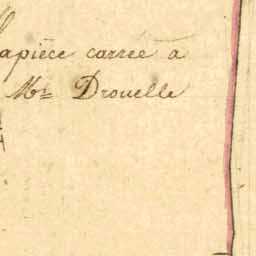 la pièce carrée à
Mr Drouelle